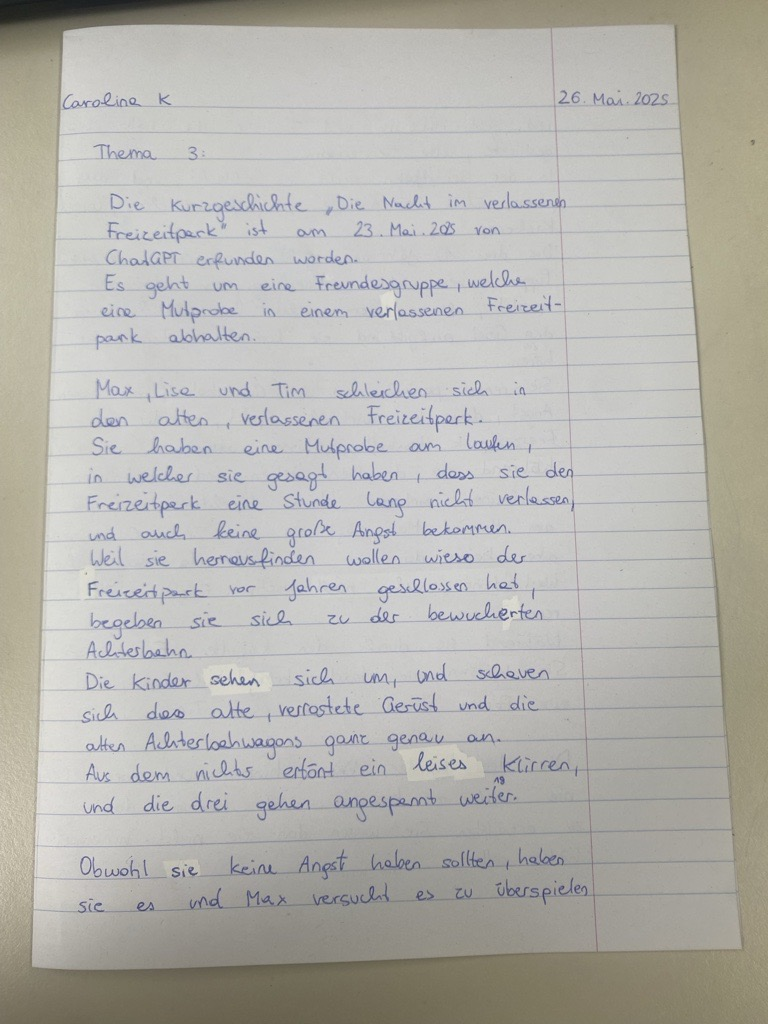 Caroline K 26. Mai. 2025
Thema 3:
Die Kurzgeschichte „Die Nacht im verlassenen
Freizeitpark" ist am 23. Mai. 205 von
ChatGPT erfunden worden.
Es geht um eine Freundesgruppe, welche
eine Mutprobe in einem verlassenen Freizeit-
park abhalten.
Max, Lisa und Tim schleichen sich in
den alten, verlassenen Freizeitpark.
Sie haben eine Mutprobe am laufen,
in welcher sie gesagt haben, dass sie den
Freizeitpark eine Stunde lang nicht verlassen,
und auch keine große Angst bekommen.
Weil sie herrausfinden wollen wieso der
Freizeitpark vor Jahren geschlossen hat,
begeben sie sich zu der bewucherten
Achterbahn
Die Kinder sehen sich um, und schauen
sich das alte, verrostete Gerüst und die
alten Achterbahwagons ganz genau an.
Aus dem nichts ertönt ein leises Klirren,
und die drei gehen angespannt weiter.
Obwohl sie keine Angst haben sollten, haben
sie es und Max versucht es zu überspielen